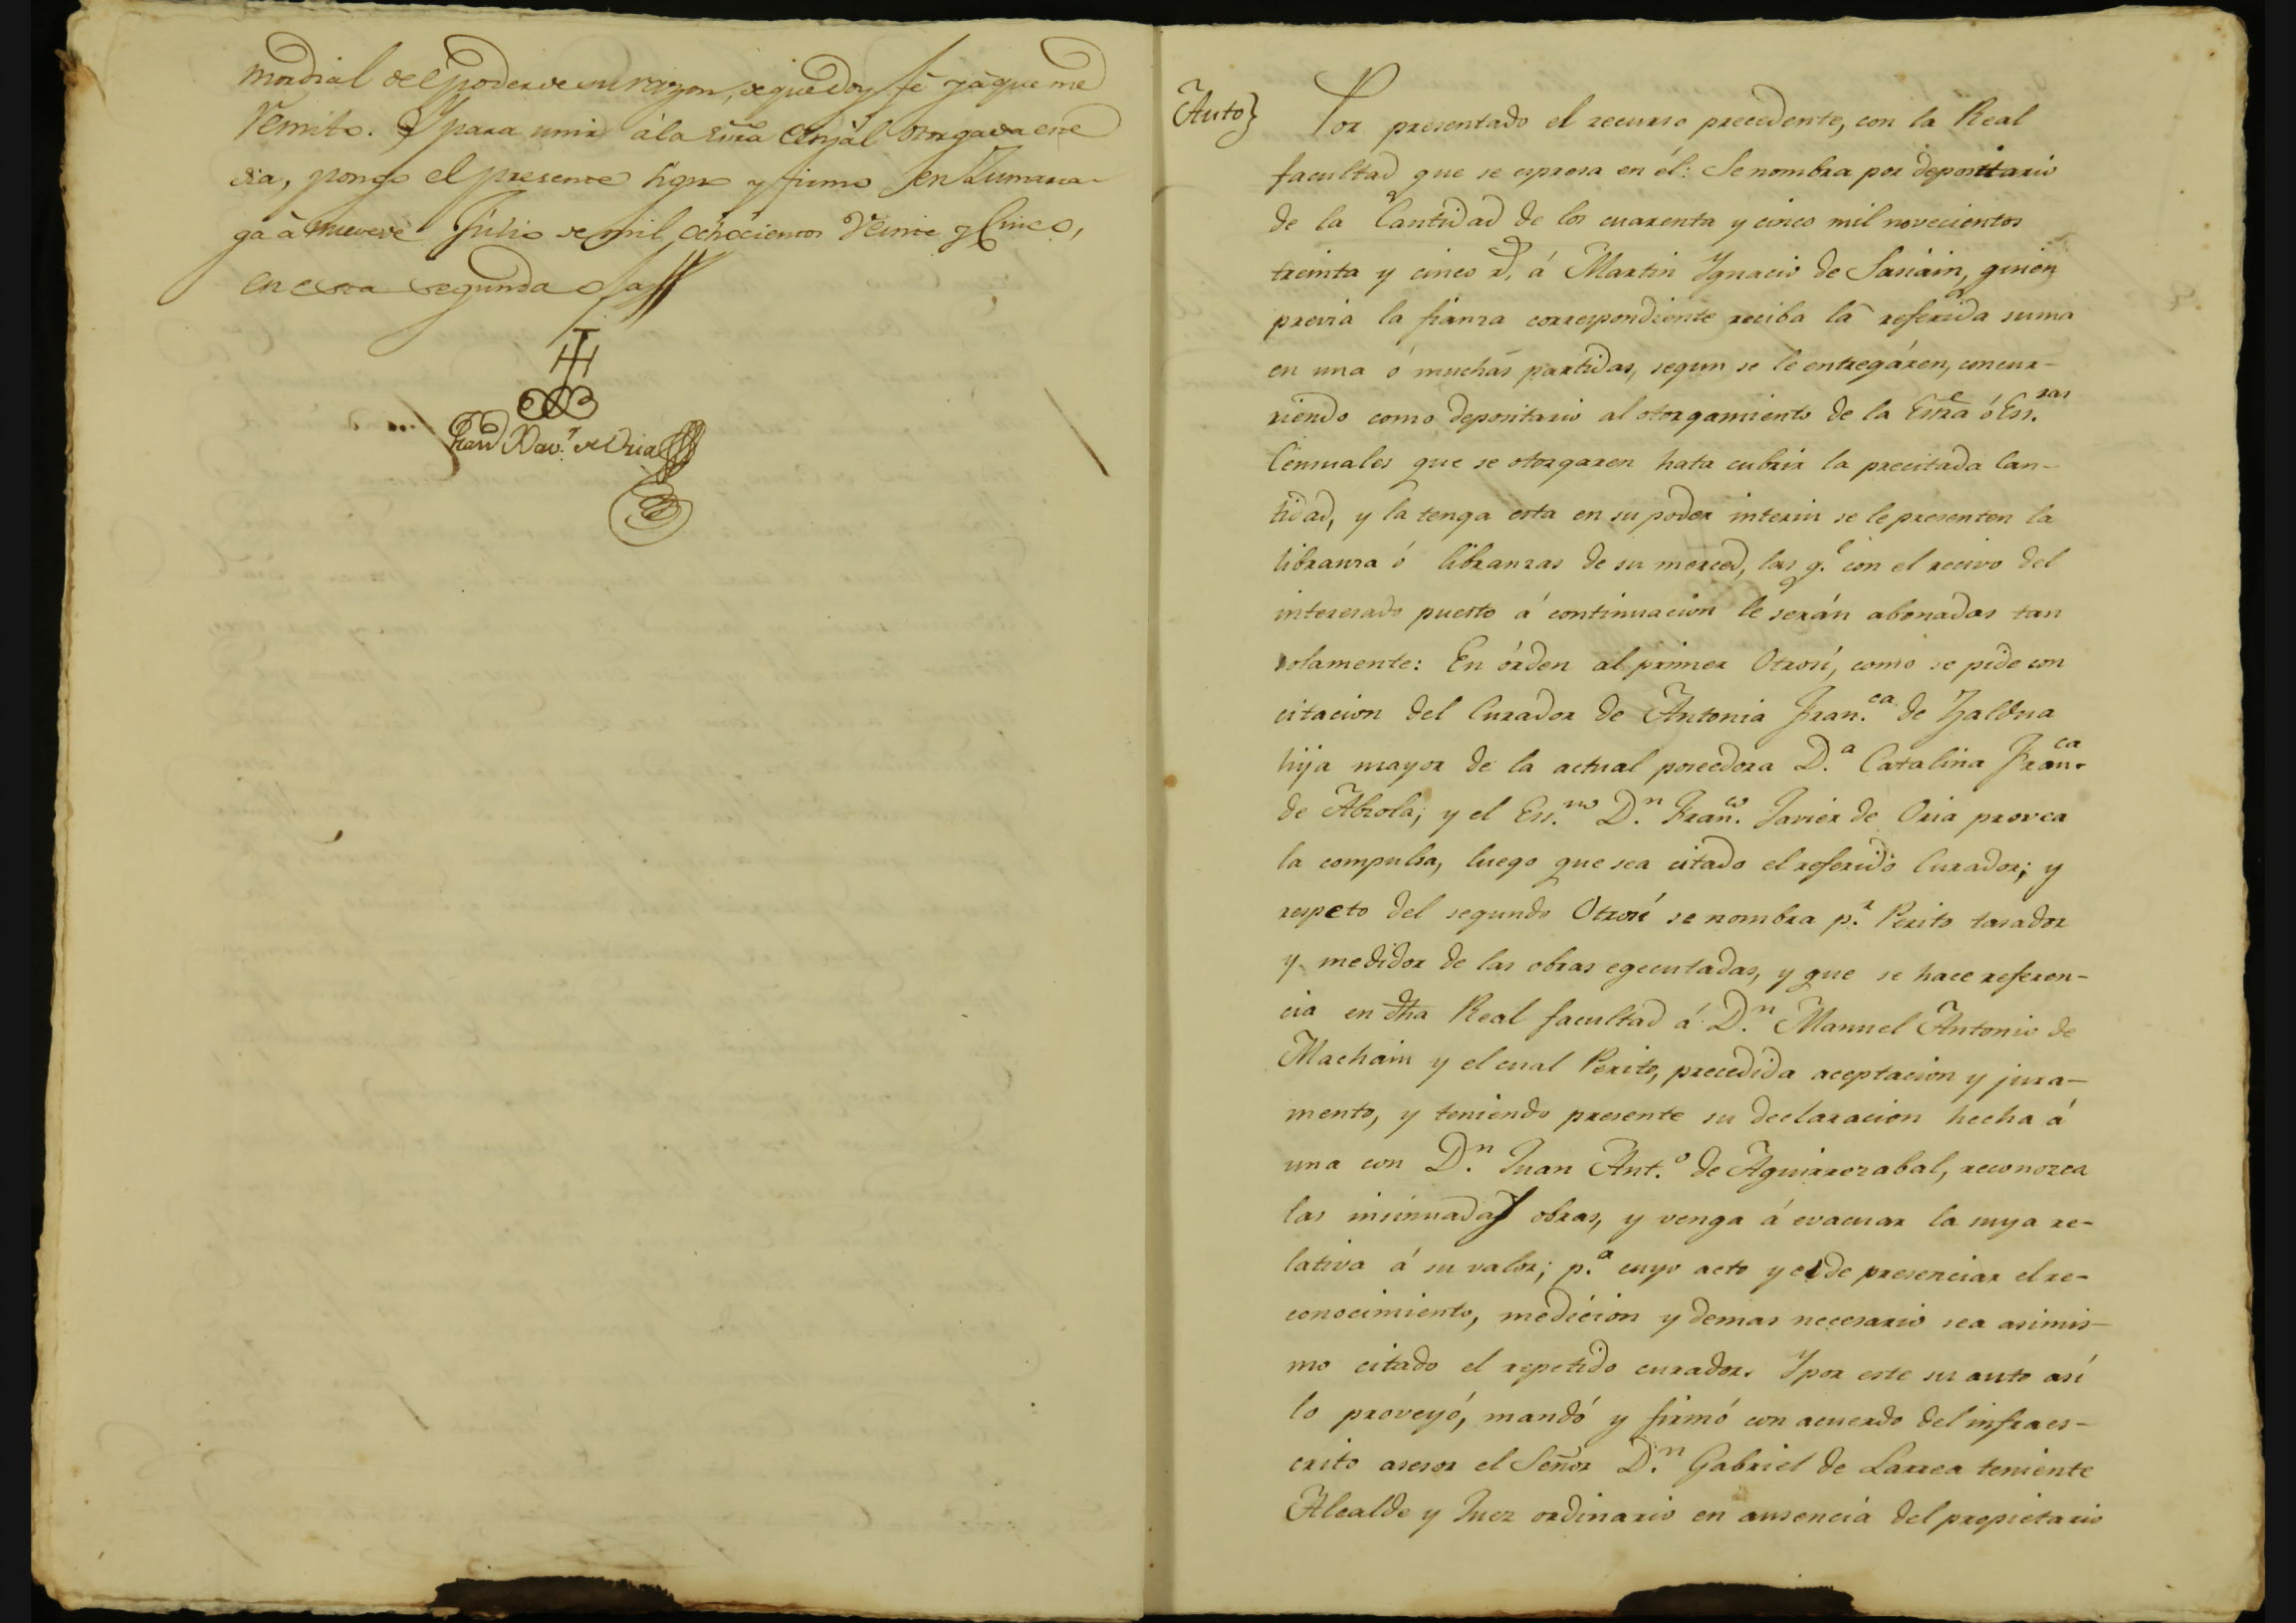 mordial del poder de su razon, de que doy fé y á que me
remito. Y para unir á la Esra Censal otorgada en e
dia, pongo el presente signo y firmo en Zumarra-
ga á nueve de Júlio de mil ochocientos veinte y cinco,
en esta segunda
Fran Xavr de Oria
Auto}
Por presentado el recurso precedente, con la Real
facultad que se espresa en él: Se nombra por deposittario
de la Cantidad de los cuarenta y cinco mil novecientos
treinta y cinco rs. á Martin Ygnacio de Sasiain, quien
previa la fianza correspondiente reciba la referida suma
en una ó muchas partidas, segun se le entregáren, concur-
riendo como depositario al otorgamiento de la Esra ó Ess.ras
Censuales que se otorgaren hata cubrir la precitada Can-
tidad, y la tenga esta en su poder interin se le presenten la
libranza ó libranzas de su merced, las q.e con el recivo del
interesado puesto á continuacion le serán abonadas tan
solamente: En órden al primer Otrosí, como se pide con
citacion del Curador de Antonia Fran.ca de Zaldua
hija mayor de la actual poseedora D.a Catalina Fran.ca
de Abrola; y el Ess.no D.n Fran.co Javier de Oria provea
la compulsa, luego que sea citado el referido Curador; y
respeto del segundo Otrosí se nombra p.r Perito tasador
y medidor de las obras egecutadas, y que se hace referen-
cia en dha Real facultad á D.n Manuel Antonio de
Machain y el cual Perito, precedida aceptacion y jura-
mento, y teniendo presente su declaracion hecha á
una con D.n Juan Ant.o de Aguirrezabal, reconozca
las insinuadas obras, y venga á evacuar la suya re-
lativa á su valor; p.a cuyo acto y el de presenciar el re-
conocimiento, medicion y demas necesario sea asimis-
mo citado el repetido curador. Y por este su auto así
lo proveyó, mandó y firmó con acuerdo del infraes-
crito asesor el Señor D.n Gabriel de Larrea teniente
Alcalde y Juez ordinario en ausencia del propietario